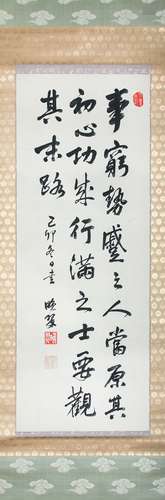 事窮勢蹙之人當原其
初心功成行滿之士要觀
其末路
己卯冬日書